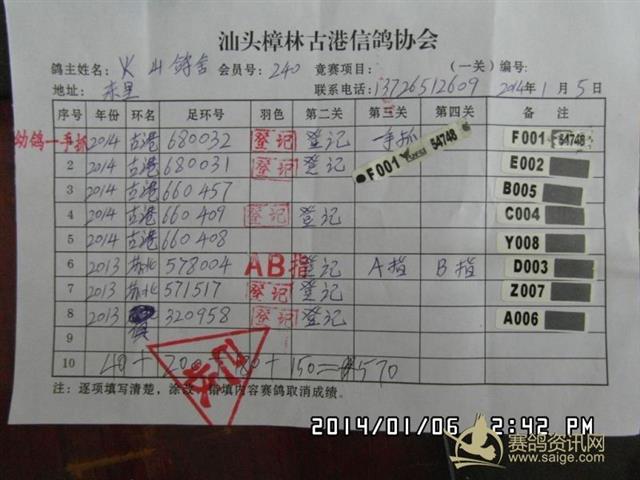 汕头樟林古港信鸽协会
鸽主姓名: 火山鸽舍 会员号: 240 竟赛项目: (一关) 编号:
地址: 东里 联系电话: 13726512609 2014年1月5日
序号 年份 环名 足环号 羽色 第二关 第三关 第四关 备注
幼鸽一手抓 2014 古港 680032 登记 登记 一手抓 F001 54748
2 2014 古港 680031 登记 登记 F001 54748 E002
3 2014 古港 660457 B005
4 2014 古港 660409 登记 登记 C004
5 2014 古港 660408 Y008
6 2013 苏北 578004 AB指 登记 A指 B指 D003
7 2013 苏北 571517 登记 登记 Z007
8 2013 320958 登记 登记 A006
9
10 40+ 200 80+150= 570
注: 逐项填写清楚, 涂改、错填内容赛鸽取消成绩。
2014/01/06 2:42 PM
赛鸽资讯网
www.saige.com